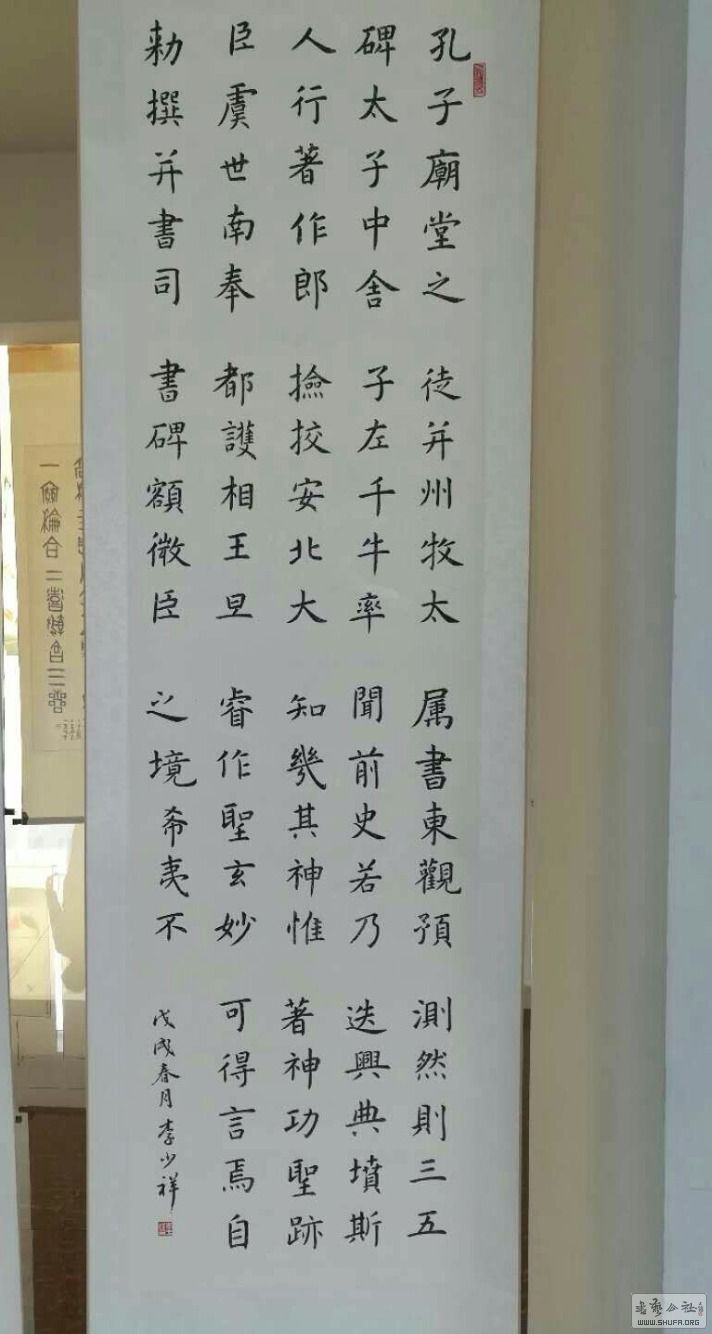 孔子廟堂之
碑太子中舎
人行著作郎
臣虞世南奉
勅撰并書司
徒并州牧太
子左千牛率
撿挍安北大
都護相王旦
書碑額微臣
属書東觀預
聞前史若乃
知幾其神惟
睿作聖玄妙
之境希夷不
測然則三五
迭興典墳斯
著神功聖跡
可得言焉自
戊戌春月李少祥
書藝公社
WWW.SHUFA.ORG